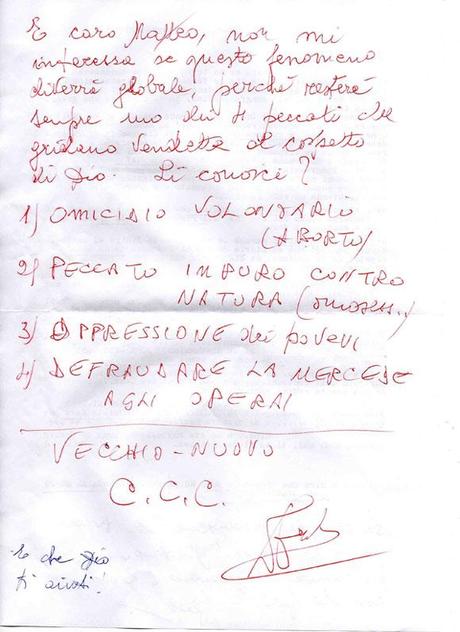 E caro Matteo, non mi
interessa se questo fenomeno
diverrà globale, perché resterà
sempre uno dei 4 peccati che
gridano vendetta al cospetto
di Dio. Li conosci?
1) OMICIDIO VOLONTARIO
(ABORTO)
2) PECCATO IMPURO CONTRO
NATURA (omoses..)
3) OPPRESSIONE dei poveri
4) DEFRAUDARE LA MERCEDE
AGLI OPERAI
VECCHIO - NUOVO
C.C.C.
E che Dio
ti aiuti!